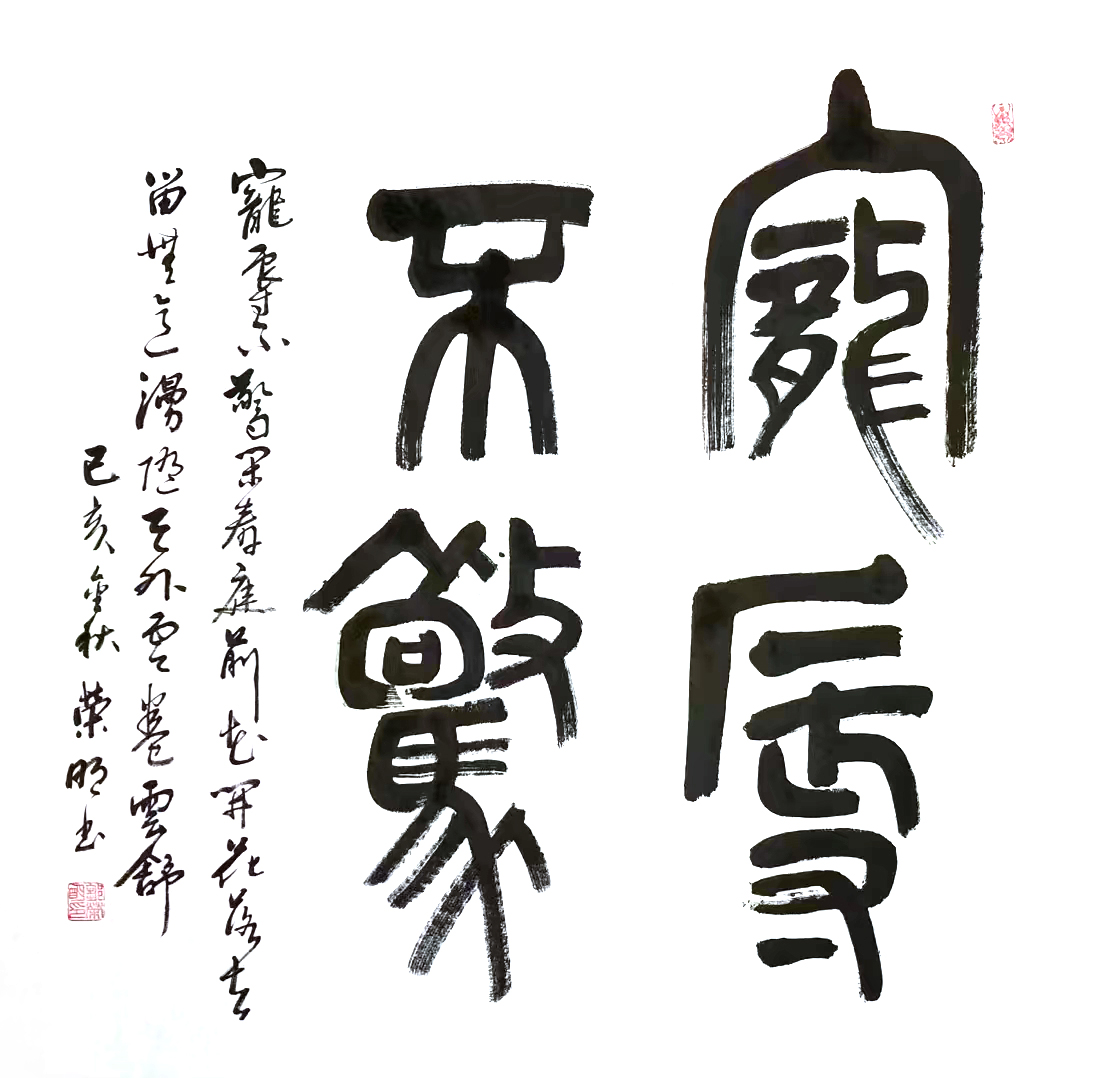 寵辱
不驚
寵辱不驚閑看庭前花開花落去
留無意漫隨天外雲卷雲舒
己亥金秋 榮明书